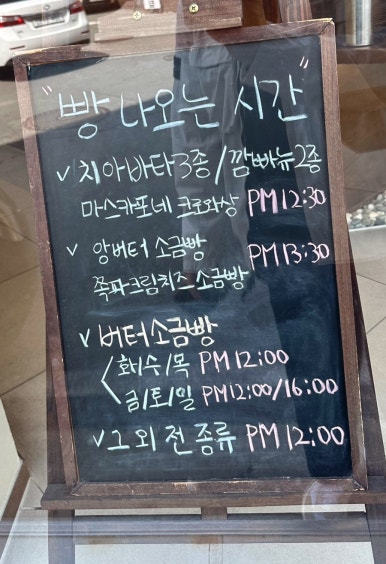 "빵 나오는 시간"
✓ 치아바타3종/깜빠뉴2종
마스카포네 크로와상 PM 12:30
✓ 앙버터 소금빵
쪽파크림치즈 소금빵 PM 13:30
✓ 버터소금빵
화/수/목 PM 12:00
금/토/일 PM 12:00/16:00
✓ 그 외 전 종류 PM 12:00